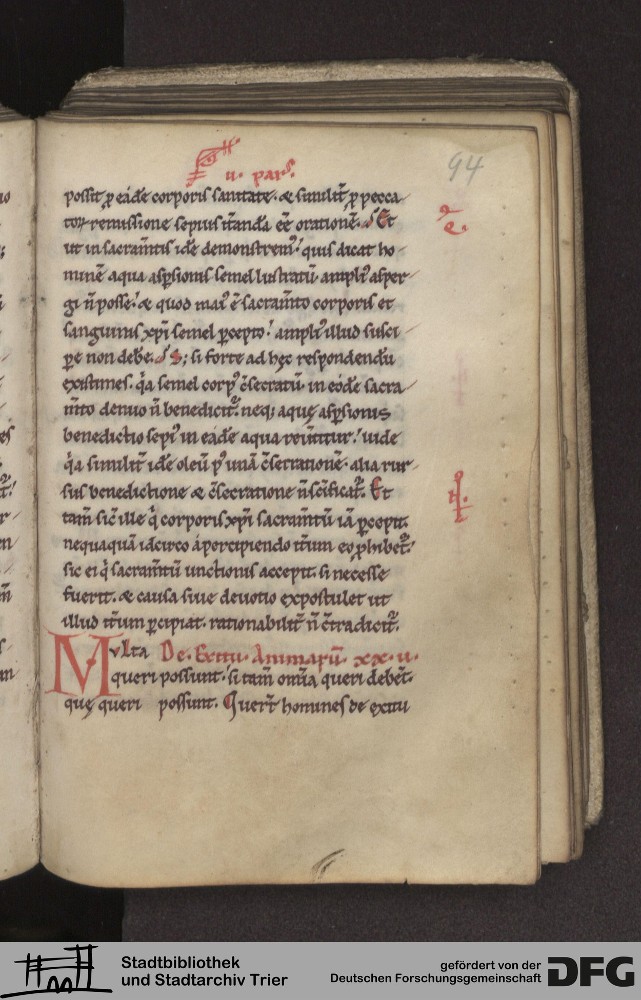 94
ii. pars
possit ꝑ eādē corporis sanitate. & similit̄ ꝓ pecca
toꝝ remissione sepius itanda eē orationē. Et
ut in sacram̄tis idē demonstrem᷒. quis dicat ho
minē aqua aspsionis semel lustratū. ampli᷒ asper
gi n̄ posse. & quod mai᷒ ē sacram̄to corporis et
sanguinis xp̄i semel ꝑcepto. ampli᷒ illud susci
ꝑe non debē. S; si forte ad hęc respondendū
existimes. q̇a semel corp᷒ c̄secratū. in eodē sacra
m̄to denuo n̄ benedicit᷑. neq; aquę aspsionis
benedictio sepi᷒ in eadē aqua reiūitur. uide
q̇a similit̄ idē oleū p᷒ unā c̄secrationē. alia rur
sus benedictione & c̄secratione n̄ sc̄ificat᷑. Et
tam̄ sic̄ ille q̇ corporis xp̄i sacram̄tū iā ꝑcepit.
nequaquā idcirco á percipiendo it̄um eo ꝓhibet᷑.
sic ei q̇ sacram̄tū unctionis accepit. si necesse
fuerit. & causa siue deuotio expostulet ut
illud it̄um ꝑcipiat. rationabilit̄ n̄ c̄tradicit᷑.
Mvlta De. Exitu. Animarū. xx. ii.
queri possunt. si tam̄ om̄ia queri debēt.
quę queri possunt. Querт̄ homines de exitu
Stadtbibliothek
und Stadtarchiv Trier
gefördert von der
Deutschen Forschungsgemeinschaft
DFG